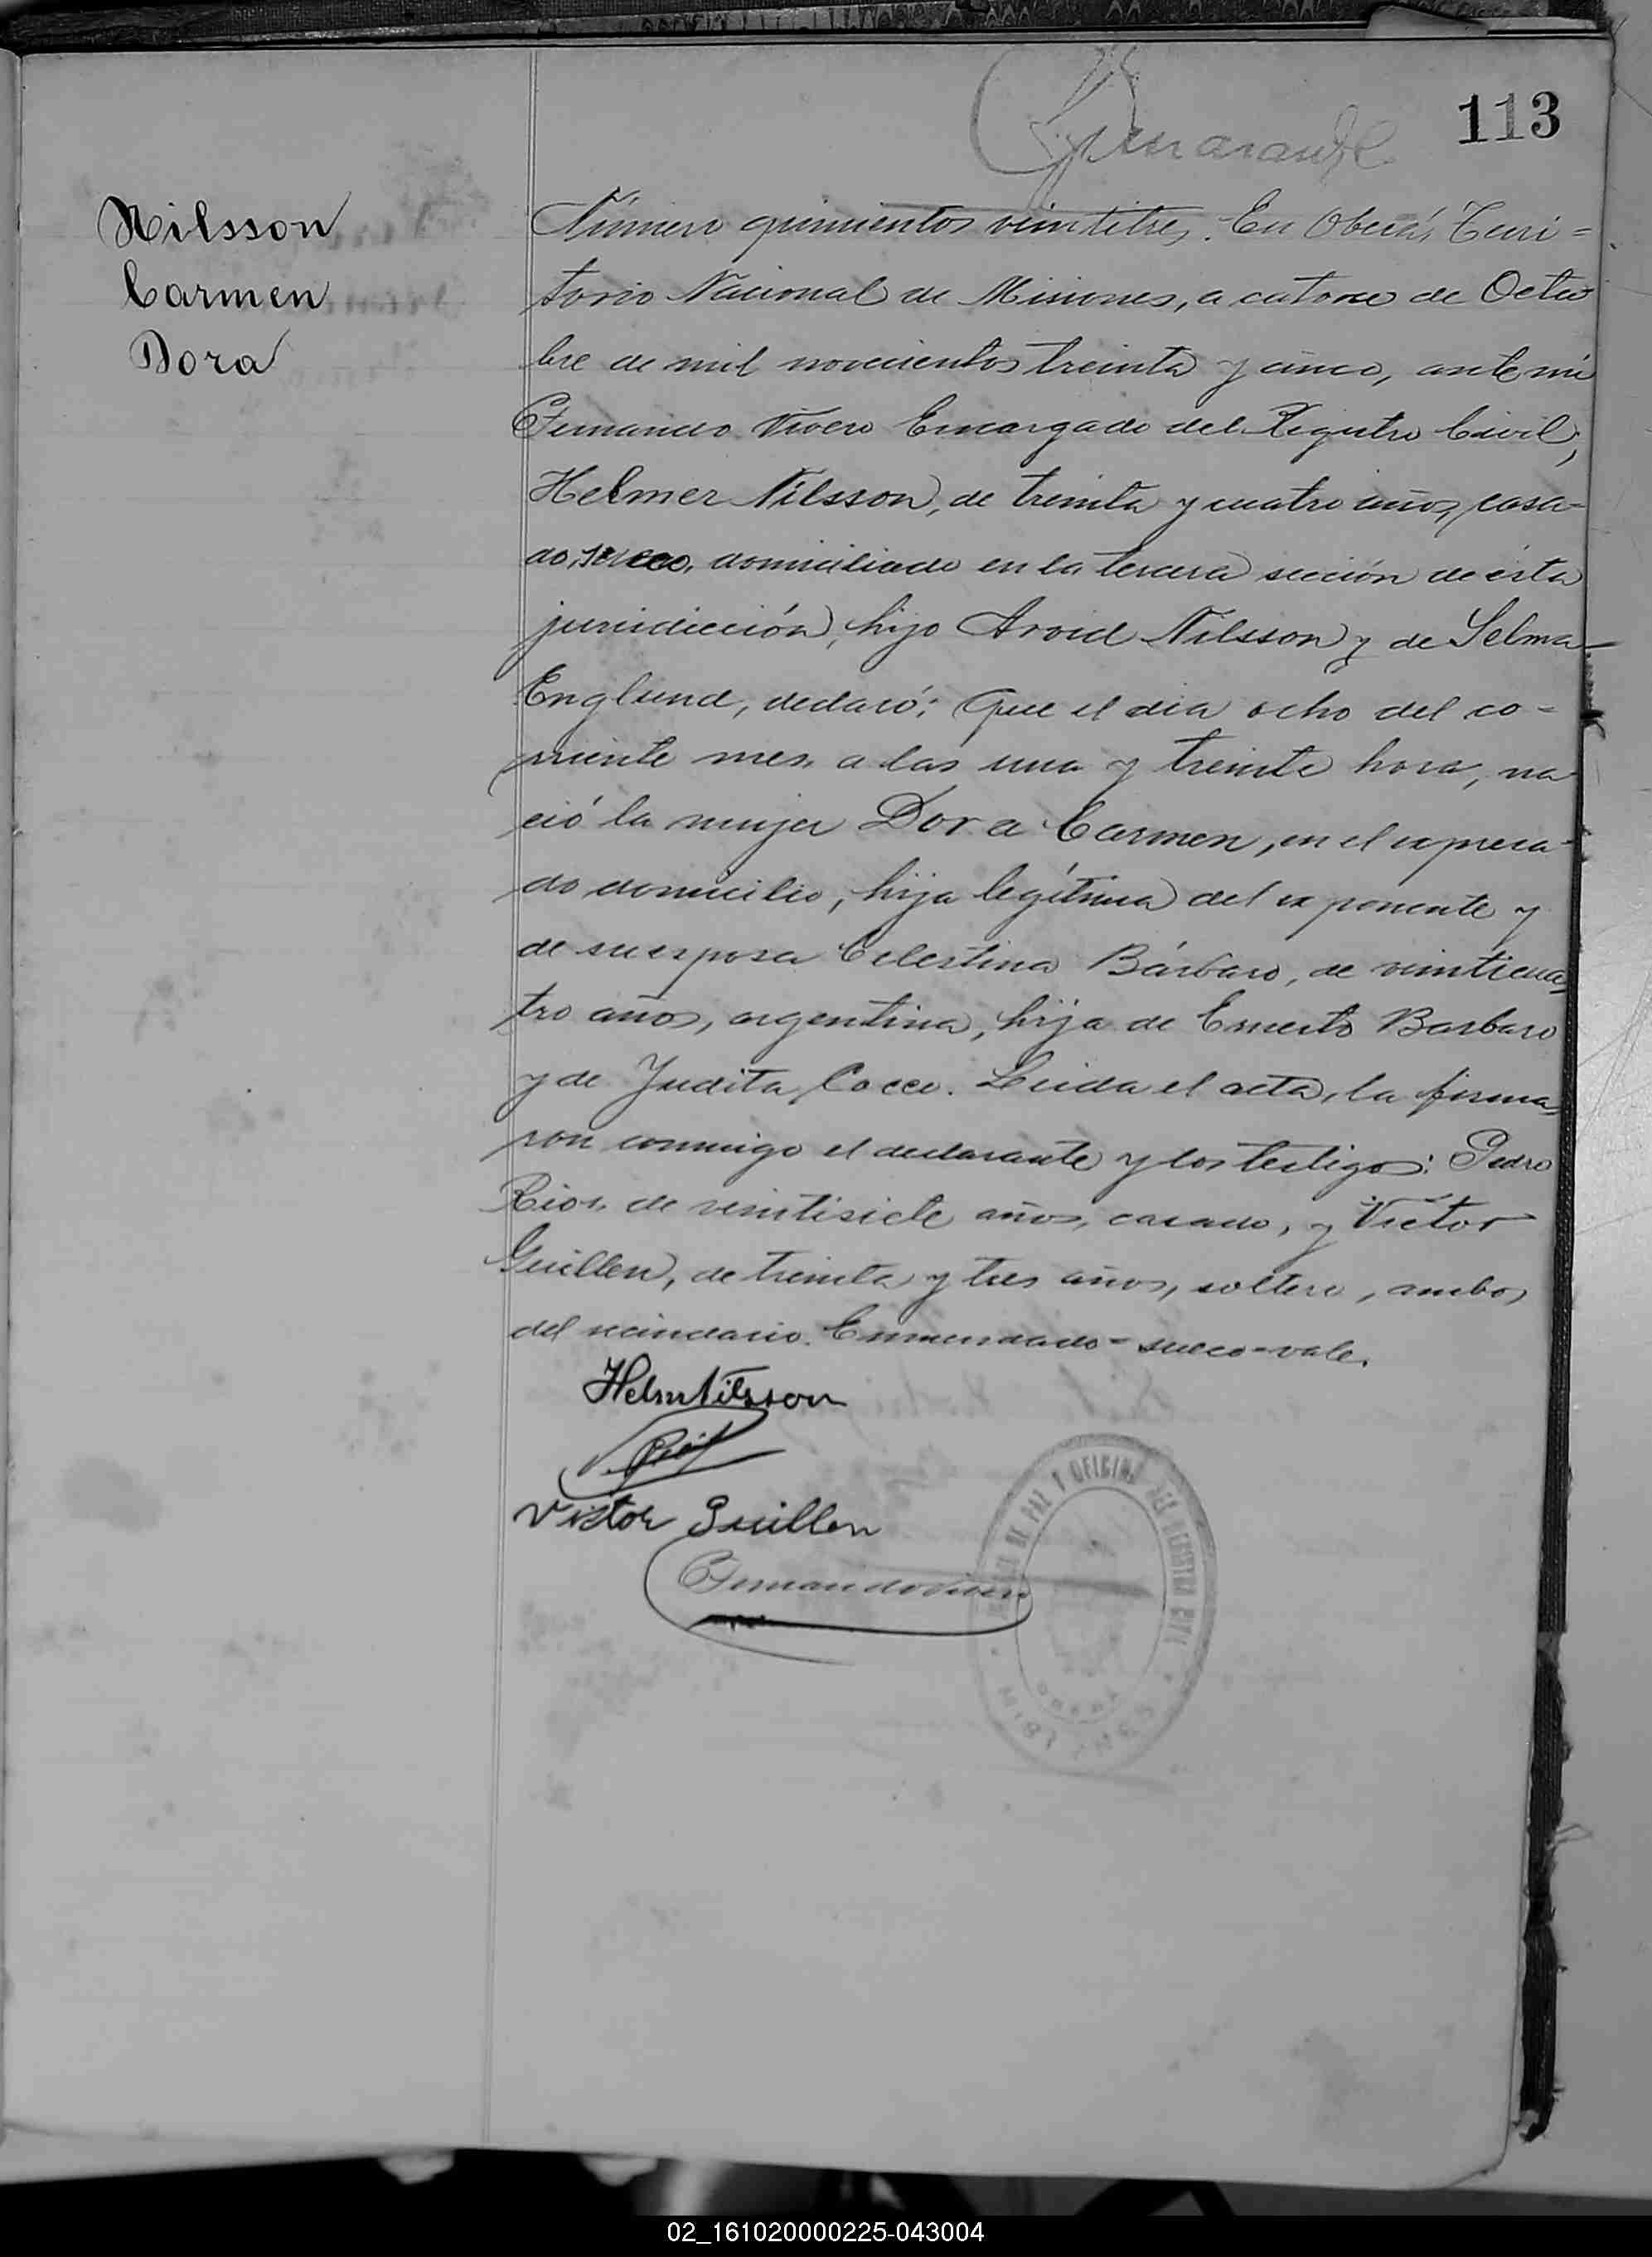 113
Nilsson
Carmen
Dora
Número quinientos veintitres. En Oberá, Terri=
torio Nacional de Misiones, a catorce de Octu
bre de mil novecientos treinta y cinco, ante mi
Fernando Vivero Encargado del Registro Civil,
Helmer Nilsson, de treinta y cuatro años, casa=
do, sueco, domiciliado en la tercera sección de ésta
jurisdicción, hijo Arvid Nilsson y de Selma
Englund, declaró: Que el dia ocho del co=
rriente mes, a las una y treinta hora, na
ció la mujer Dora Carmen, en el expresa=
do domicilio, hija legítima del exponente y
de su esposa Celestina Bárbaro, de veinticua
tro años, argentina, hija de Ernesto Barbaro
y de Judita Cocce. Leida el acta, la firma
ron conmigo el declarante y los testigos: Pedro
Rios, de veintisiete años, casado, y Victor
Guillen, de treinta y tres años, soltero, ambos
del vecindario. Enmendado=sueco=vale.
Helm Nilsson
Victor Guillen
Fernando Vivero
DE PAZ Y OFICINA DEL REGISTRO CIVIL
OBERA
MISIONES
02_161020000225-043004